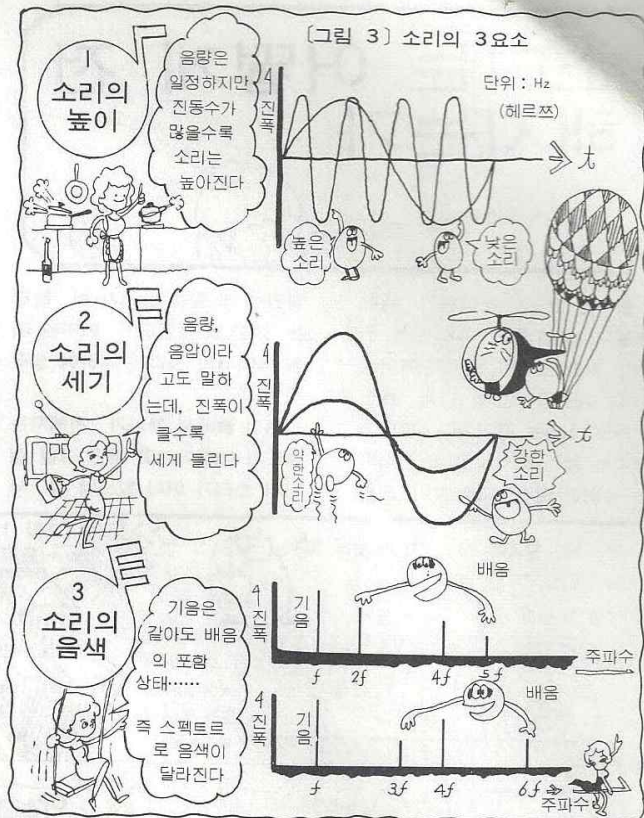 [그림 3] 소리의 3요소
1
소리의
높이
음량은
일정하지만
진동수가
많을수록
소리는
높아진다
진폭
단위 : Hz
(헤르쯔)
t
높은
소리
낮은
소리
2
소리의
세기
음량,
음압이라
고도 말하
는데, 진폭이
클수록
세게 들린다
진폭
t
약한소리
강한
소리
3
소리의
음색
기음은
같아도 배음
의 포함
상태……
즉 스펙트르
로 음색이
달라진다
진폭
기음
배음
f 2f 4f 5f
주파수
진폭
기음
배음
f 3f 4f 6f
주파수